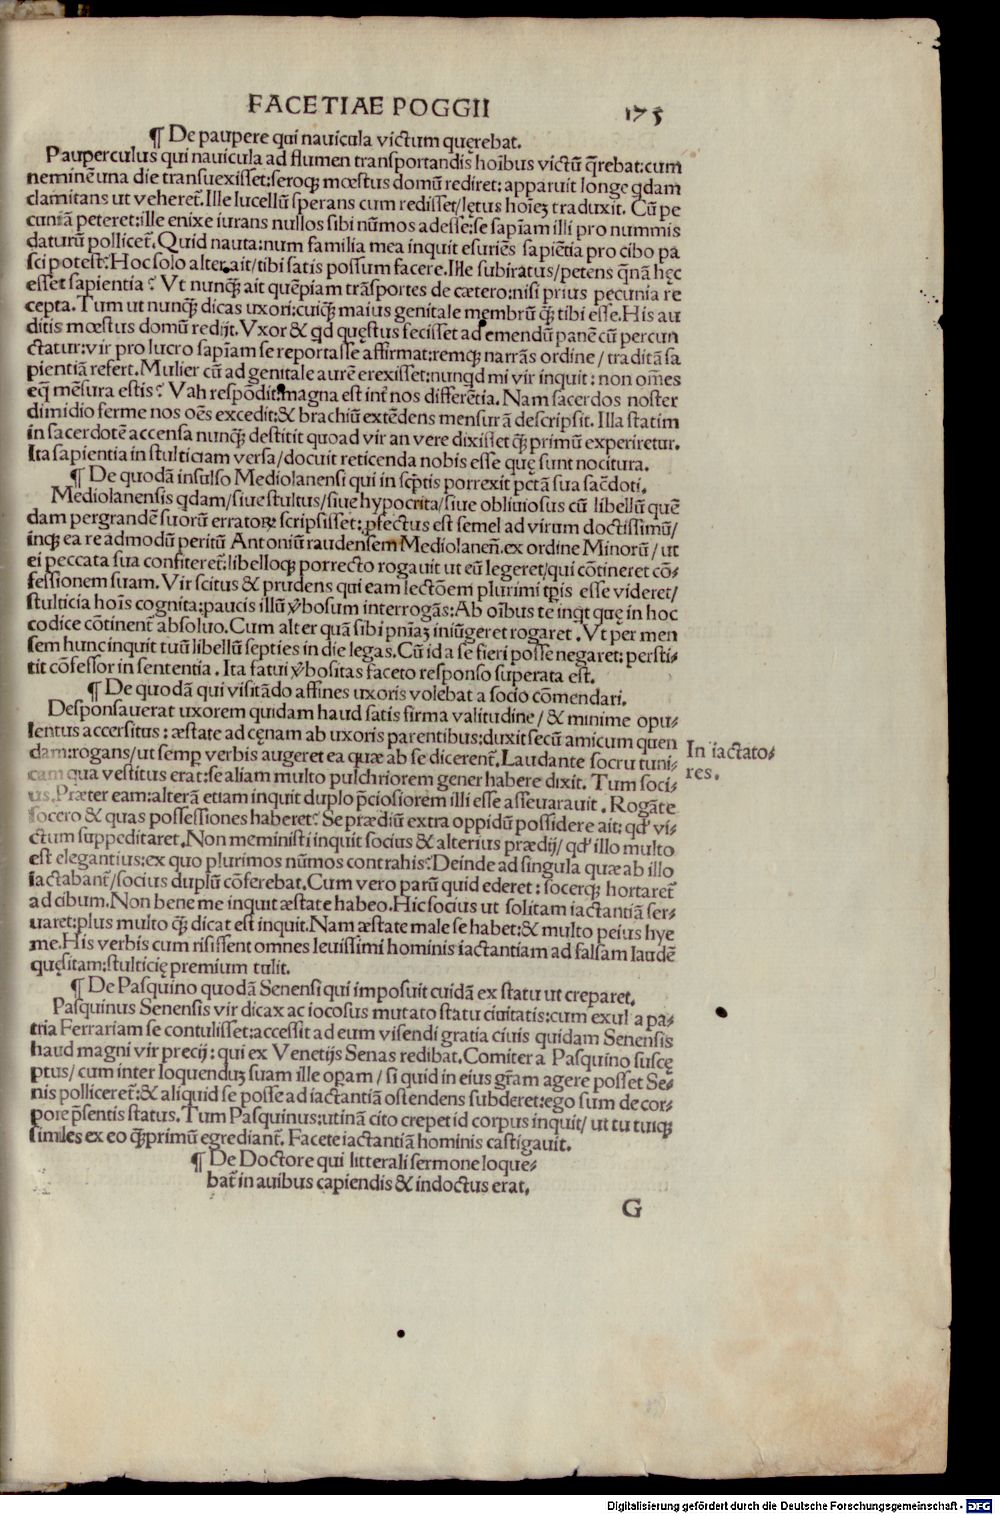 FACETIAE POGGII 175
¶ De paupere qui nauicula victum quęrebat.
Pauperculus qui nauicula ad flumen transportandis hoībus victū q̄rebat:cum
neminē una die transuexisset:seroq; mœstus domū rediret: apparuit longe qdam
clamitans ut veheret̄. Ille lucellū sperans cum redisset/lętus hoīez traduxit. Cū pe
cuniā peteret:ille enixe iurans nullos sibi nūmos adesse:se sapīam illi pro nummis
daturū pollicet̄. Quid nauta:num familia mea inquit esuriēs sapiētia pro cibo pa
sci potest? Hoc solo alter ait/tibi satis possum facere. Ille subiratus/petens qnā hęc
esset sapientia? Vt nunq̄; ait quēpiam trāsportes de cætero:nisi prius pecunia re
cepta. Tum ut nunq̄; dicas uxori:cuiq̄; maius genitale membrū q̄; tibi esse. His au
ditis mœstus domū redijt. Vxor & qd quęstus fecisset ad emendū panē cū percun
ctatur:vir pro lucro sapīam se reportasse affirmat:remq; narrās ordine/ traditā sa
pientiā refert. Mulier cū ad genitale aurē erexisset:nunqd mi vir inquit: non om̄es
eq̄ mēsura estis? Vah respōdit:magna est int̄ nos differētia. Nam sacerdos noster
dimidio ferme nos oēs excedit:& brachiū extēdens mensurā descripsit. Illa statim
in sacerdotē accensa nunq̄; destitit quoad vir an vere dixisset q̄; primū experiretur.
Ita sapientia in stulticiam versa/docuit reticenda nobis esse quę sunt nocitura.
¶ De quodā insulso Mediolanensi qui in scp̄tis porrexit pctā sua saēdoti.
Mediolanensis qdam/siue stultus/siue hypocrita/siue obliuiosus cū libellū quē
dam pergrandē suorū errator; scripsisset: pfectus est semel ad virum doctissimū/
inq; ea re admodū peritū Antoniū raudensem Mediolanen̄. ex ordine Minorū/ ut
ei peccata sua confiteret̄:libelloq; porrecto rogauit ut eū legeret/qui cōtineret cō-
fessionem suam. Vir scitus & prudens qui eam lectōem plurimi tp̄is esse videret/
stulticia hoīs cognita:paucis illū v̄bosum interrogās: Ab oībus te inqt quę in hoc
codice cōtinent̄ absoluo. Cum alter quā sibi pnīaz iniūgeret rogaret. Vt per men
sem hunc inquit tuū libellū septies in die legas. Cū id a se fieri posse negaret: persti-
tit cōfessor in sententia. Ita fatui v̄bositas faceto responso superata est.
¶ De quodā qui visitādo affines uxoris volebat a socio cōmendari.
Desponsauerat uxorem quidam haud satis firma valitudine/ & minime opu-
lentus accersitus: æstate ad cęnam ab uxoris parentibus:duxit secū amicum quen
dam:rogans/ut semp verbis augeret ea quæ ab se dicerent̄. Laudante socru tuni-
cam qua vestitus erat:se aliam multo pulchriorem gener habere dixit. Tum soci-
us. Præter eam:alterā etiam inquit duplo p̄ciosiorem illi esse asseuarauit. Rogāte
socero & quas possessiones haberet? Se prædiū extra oppidū possidere ait: qd' vi-
ctum suppeditaret. Non meministi inquit socius & alterius prædij/ qd' illo multo
est elegantius:ex quo plurimos nūmos contrahis? Deinde ad singula quæ ab illo
iactabant̄/socius duplū cōferebat. Cum vero parū quid ederet: socerq; hortaret̄
ad cibum. Non bene me inquit æstate habeo. Hic socius ut solitam iactantiā ser-
uaret:plus multo q̄; dicat est inquit. Nam æstate male se habet:& multo peius hye
me. His verbis cum risissent omnes leuissimi hominis iactantiam ad falsam laudē
quęsitam:stulticię premium tulit.
In iactato-
res.
¶ De Pasquino quodā Senensi qui imposuit cuidā ex statu ut creparet.
Pasquinus Senensis vir dicax ac iocosus mutato statu ciuitatis:cum exul a pa-
tria Ferrariam se contulisset:accessit ad eum visendi gratia ciuis quidam Senensis
haud magni vir precij: qui ex Venetijs Senas redibat. Comiter a Pasquino suscę
ptus/ cum inter loquenduz suam ille opam/ si quid in eius gr̄am agere posset Se-
nis polliceret̄:& aliquid se posse ad iactantiā ostendens subderet:ego sum de cor-
pore p̄sentis status. Tum Pasquinus:utinā cito crepet id corpus inquit/ ut tu tuiq;
similes ex eo q̄;primū egrediant̄. Facete iactantiā hominis castigauit.
¶ De Doctore qui litterali sermone loque-
bat̄ in auibus capiendis & indoctus erat.
G
Digitalisierung gefördert durch die Deutsche Forschungsgemeinschaft - DFG